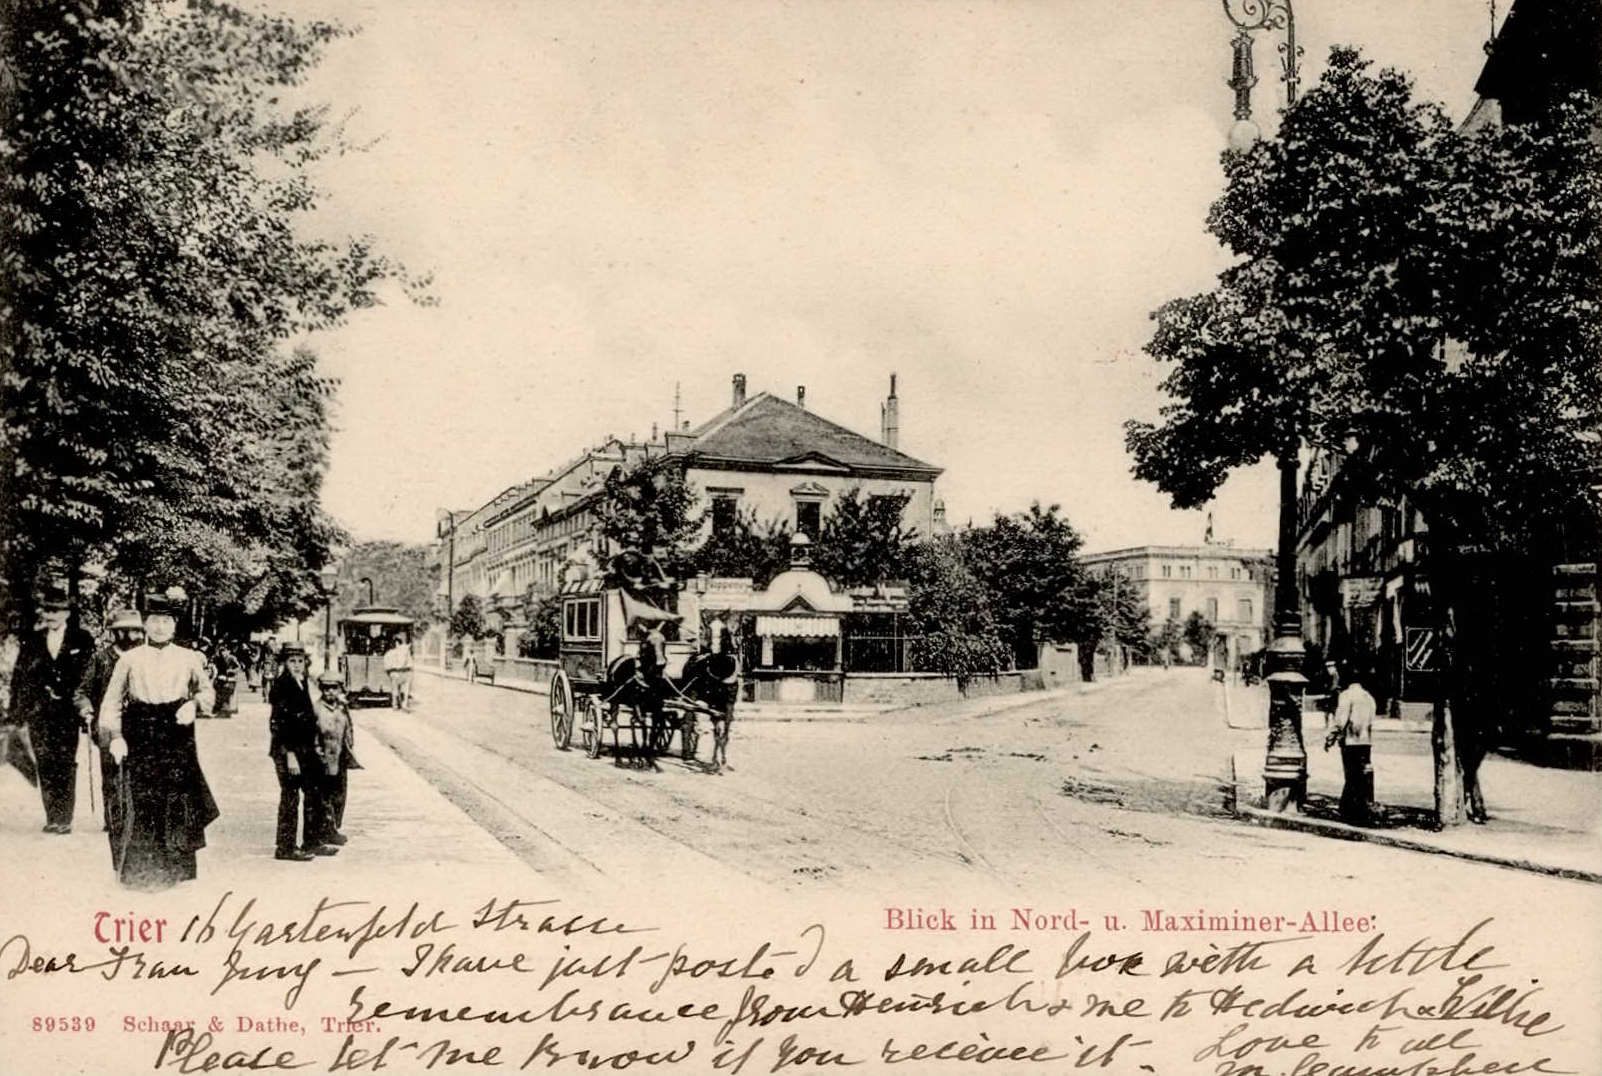 Trier 16 Gartenfeld Strasse
Blick in Nord- u. Maximiner-Allee:
Dear Frau Jung — I have just posted a small box with a little
remembrance from Heinrich & me to Hedwich & Willie
89539 Schaar & Dathe, Trier.
Please let me know if you receive it - Love to all
M.